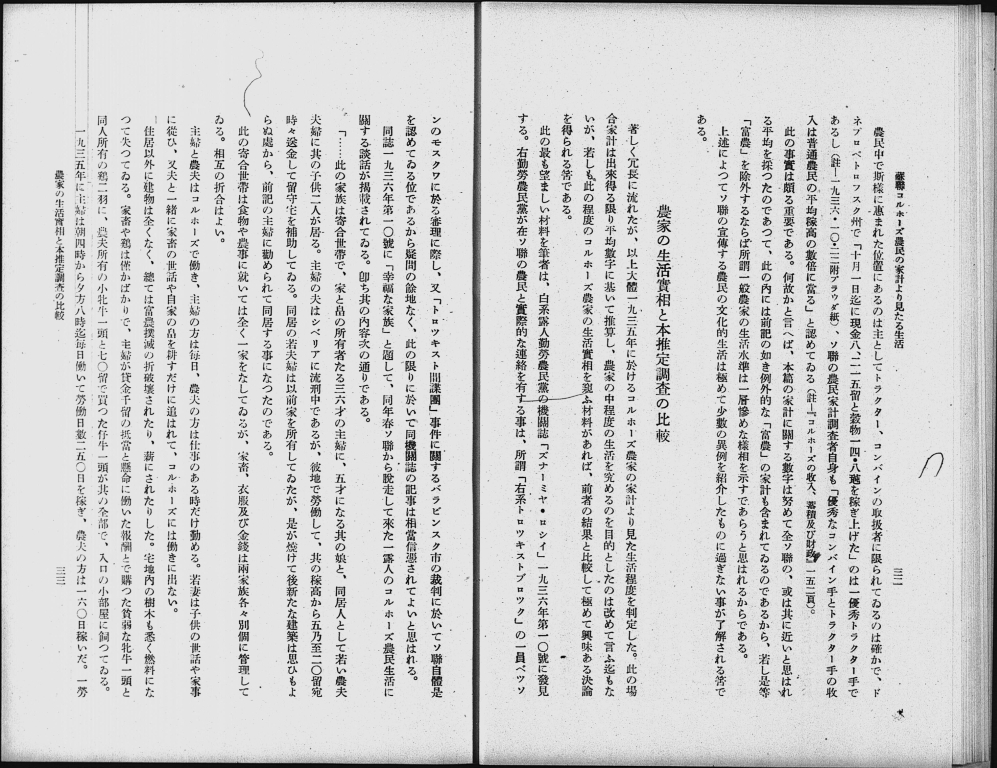 蘇聯コルホーズ農民の家計より見たる生活
三二
農民中で斯様に惠まれた位置にあるのは主としてトラクター、コンバインの取扱者に限られてゐるのは確かで、ド
ネプロペトロフスク州で「十月一日迄に現金八、二一五留と穀物一四・八瓲を稼ぎ上げた」のは一優秀トラクター手で
あるし（註―一九三六・一〇・二二附プラウダ紙）、ソ聯の農民家計調査者自身も「優秀なコンバイン手とトラクター手の收
入は普通農民の平均稼高の數倍に當る」と認めてゐる（註―『コルホーズの收入、蓄積及び財政』一五二頁）。
此の事實は頗る重要である。何故かと言へば、本篇の家計に關する數字は努めて全ソ聯の、或は其に近いと思はれ
る平均を採つたのであつて、此の內には前記の如き例外的な「富農」の家計も含まれてゐるのであるから、若し是等
「富農」を除外するならば所謂一般農家の生活水準は一層慘めな樣相を示すであらうと思はれるからである。
上述によつてソ聯の宣傳する農民の文化的生活は極めて少數の異例を紹介したものに過ぎない事が了解される筈で
ある。
農家の生活實相と本推定調査の比較
著しく冗長に流れたが、以上大體一九三五年に於けるコルホーズ農家の家計より見た生活程度を判定した。此の場
合家計は出來得る限り平均數字に基いて推算し、農家の中程度の生活を究めるのを目的としたのは改めて言ふ迄もな
いが、若しも此の程度のコルホーズ農家の生活實相を窺ふ材料があれば、前者の結果と比較して極めて興味ある決論
を得られる筈である。
此の最も望ましい材料を筆者は、白系露人勤勞農民黨の機關誌「ズナーミヤ・ロシイ」一九三六年第一〇號に發見
する。右勤勞農民黨が在ソ聯の農民と實際的な連絡を有する事は、所謂「右系トロツキストブロツク」の一員ベツソ
ンのモスクワに於る審理に際し、又「トロツキスト間諜團」事件に關するバラビンスク市の裁判に於いてソ聯自體是
を認めてゐる位であるから疑問の餘地なく、此の限りに於いて同機關誌の記事は相當信憑されてよいと思はれる。
同誌一九三六年第一〇號に「幸福な家族」と題して、同年春ソ聯から脫走して來た一露人のコルホーズ農民生活に
關する談話が揭載されてゐる。卽ち其の內容次の通りである。
「……此の家族は寄合世帶で、家と畠の所有者たる三六才の主婦に、五才になる其の娘と、同居人として若い農夫
夫婦に其の子供二人が居る。主婦の夫はシベリアに流刑中であるが、彼地で勞働して、其の稼高から五乃至二〇留宛
時々送金して留守宅を補助してゐる。同居の若夫婦は以前家を所有してゐたが、是が燒けて後新たな建築は思ひもよ
らぬ處から、前記の主婦に勸められて同居する事になつたのである。
此の寄合世帶は食物や農事に就いては全く一家をなしてゐるが、家畜、衣服及び金錢は兩家族各々別個に管理して
ゐる。相互の折合はよい。
主婦と農夫はコルホーズで働き、主婦の方は每日、農夫の方は仕事のある時だけ勤める。若妻は子供の世話や家事
に從ひ、又夫と一緒に家畜の世話や自家の畠を耕すだけに追はれて、コルホーズには働きに出ない。
住居以外に建物は全くなく、總ては富農撲滅の折破壞されたり、薪にされたりした。宅地內の樹木も悉く燃料にな
つて失つてゐる。家畜や鷄は僅かばかりで、主婦が貸金千留の抵當と懸命に働いた報酬とで購つた貧弱な牝牛一頭と
同人所有の鷄二羽に、農夫所有の小牝牛一頭と七〇留で買つた仔牛一頭が其の全部で、入口の小部屋に飼つてゐる。
一九三五年に主婦は朝四時から夕方八時迄每日働いて勞働日數二五〇日を稼ぎ、農夫の方は一六〇日稼いだ。一勞
農家の生活實相と本推定調査の比較
三三